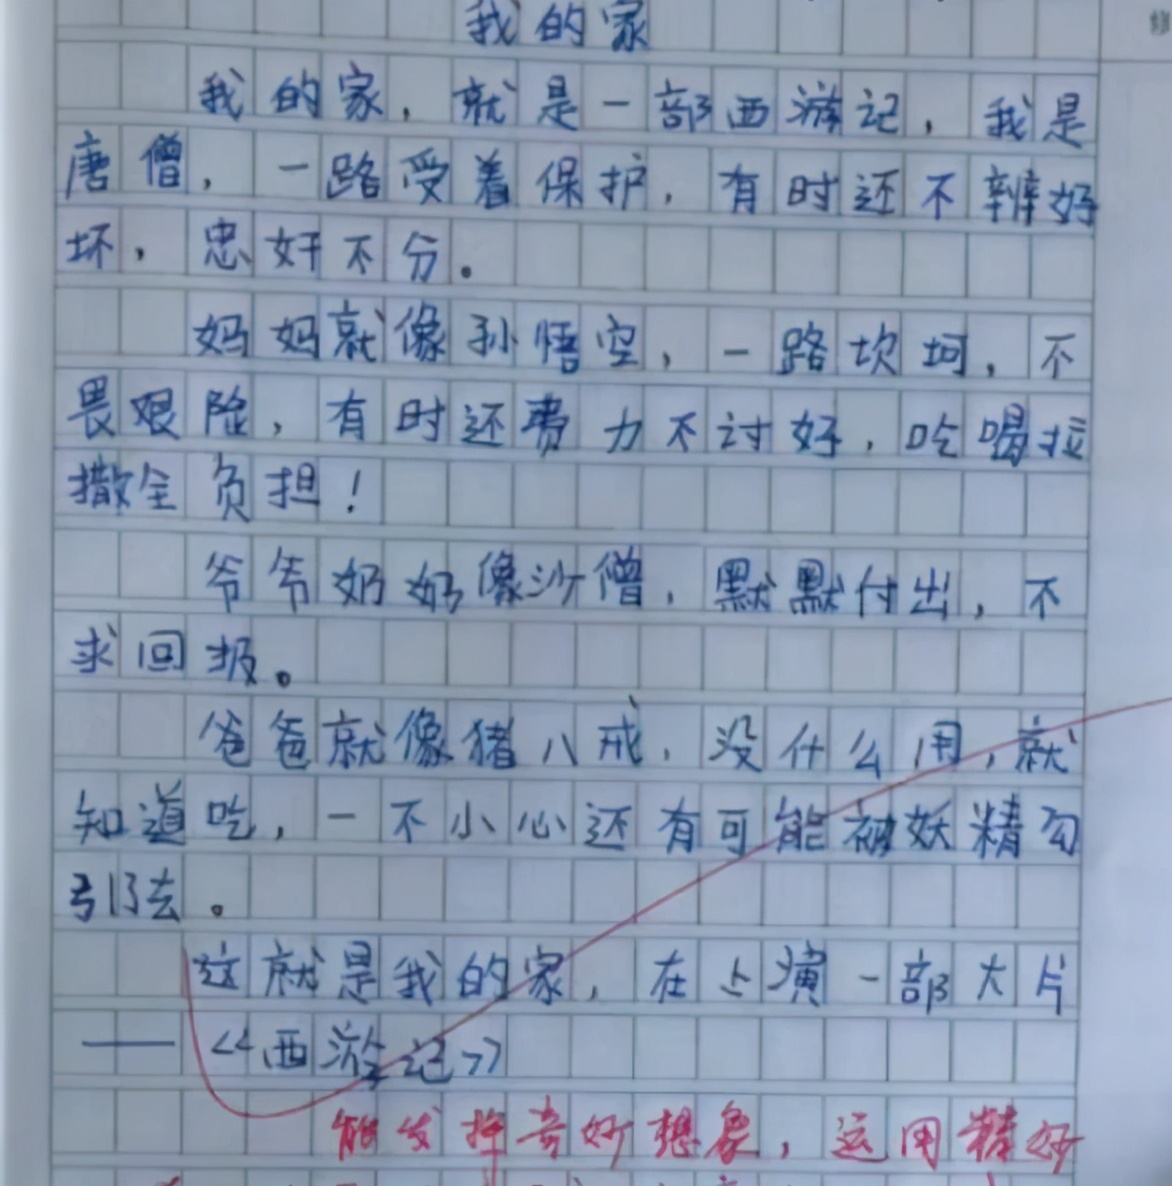 我的家
我的家，就是一部西游记，我是
唐僧，一路受着保护，有时还不辨好
坏，忠奸不分。
妈妈就像孙悟空，一路坎坷，不
畏艰险，有时还费力不讨好，吃喝拉
撒全负担！
爷爷奶奶像沙僧，默默付出，不
求回报。
爸爸就像猪八戒，没什么用，就
知道吃，一不小心还有可能被妖精勾
引了去。
这就是我的家，在上演一部大片
——《西游记》
能发挥奇妙想象，运用精妙